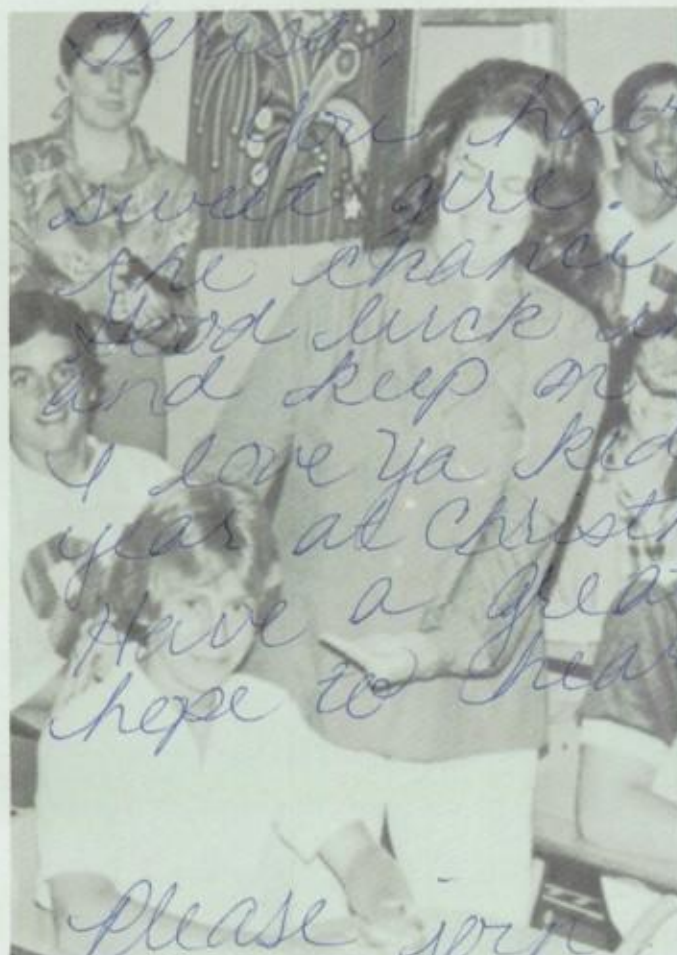 Teresa,
You have
sweet girl.
the chance
Good luck
and keep on
I love ya kid
year at Christ
Have a great
hope to hear
Please